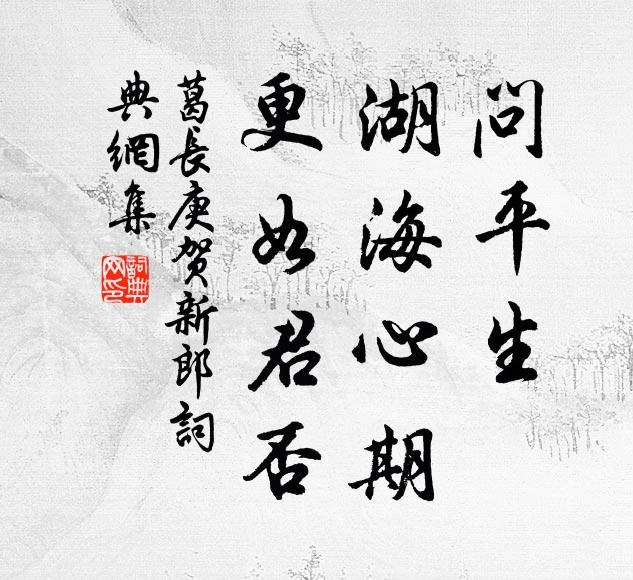 问平生
湖海心期
更如君否
葛長庚贺新郎詞
典網集
詞典网印